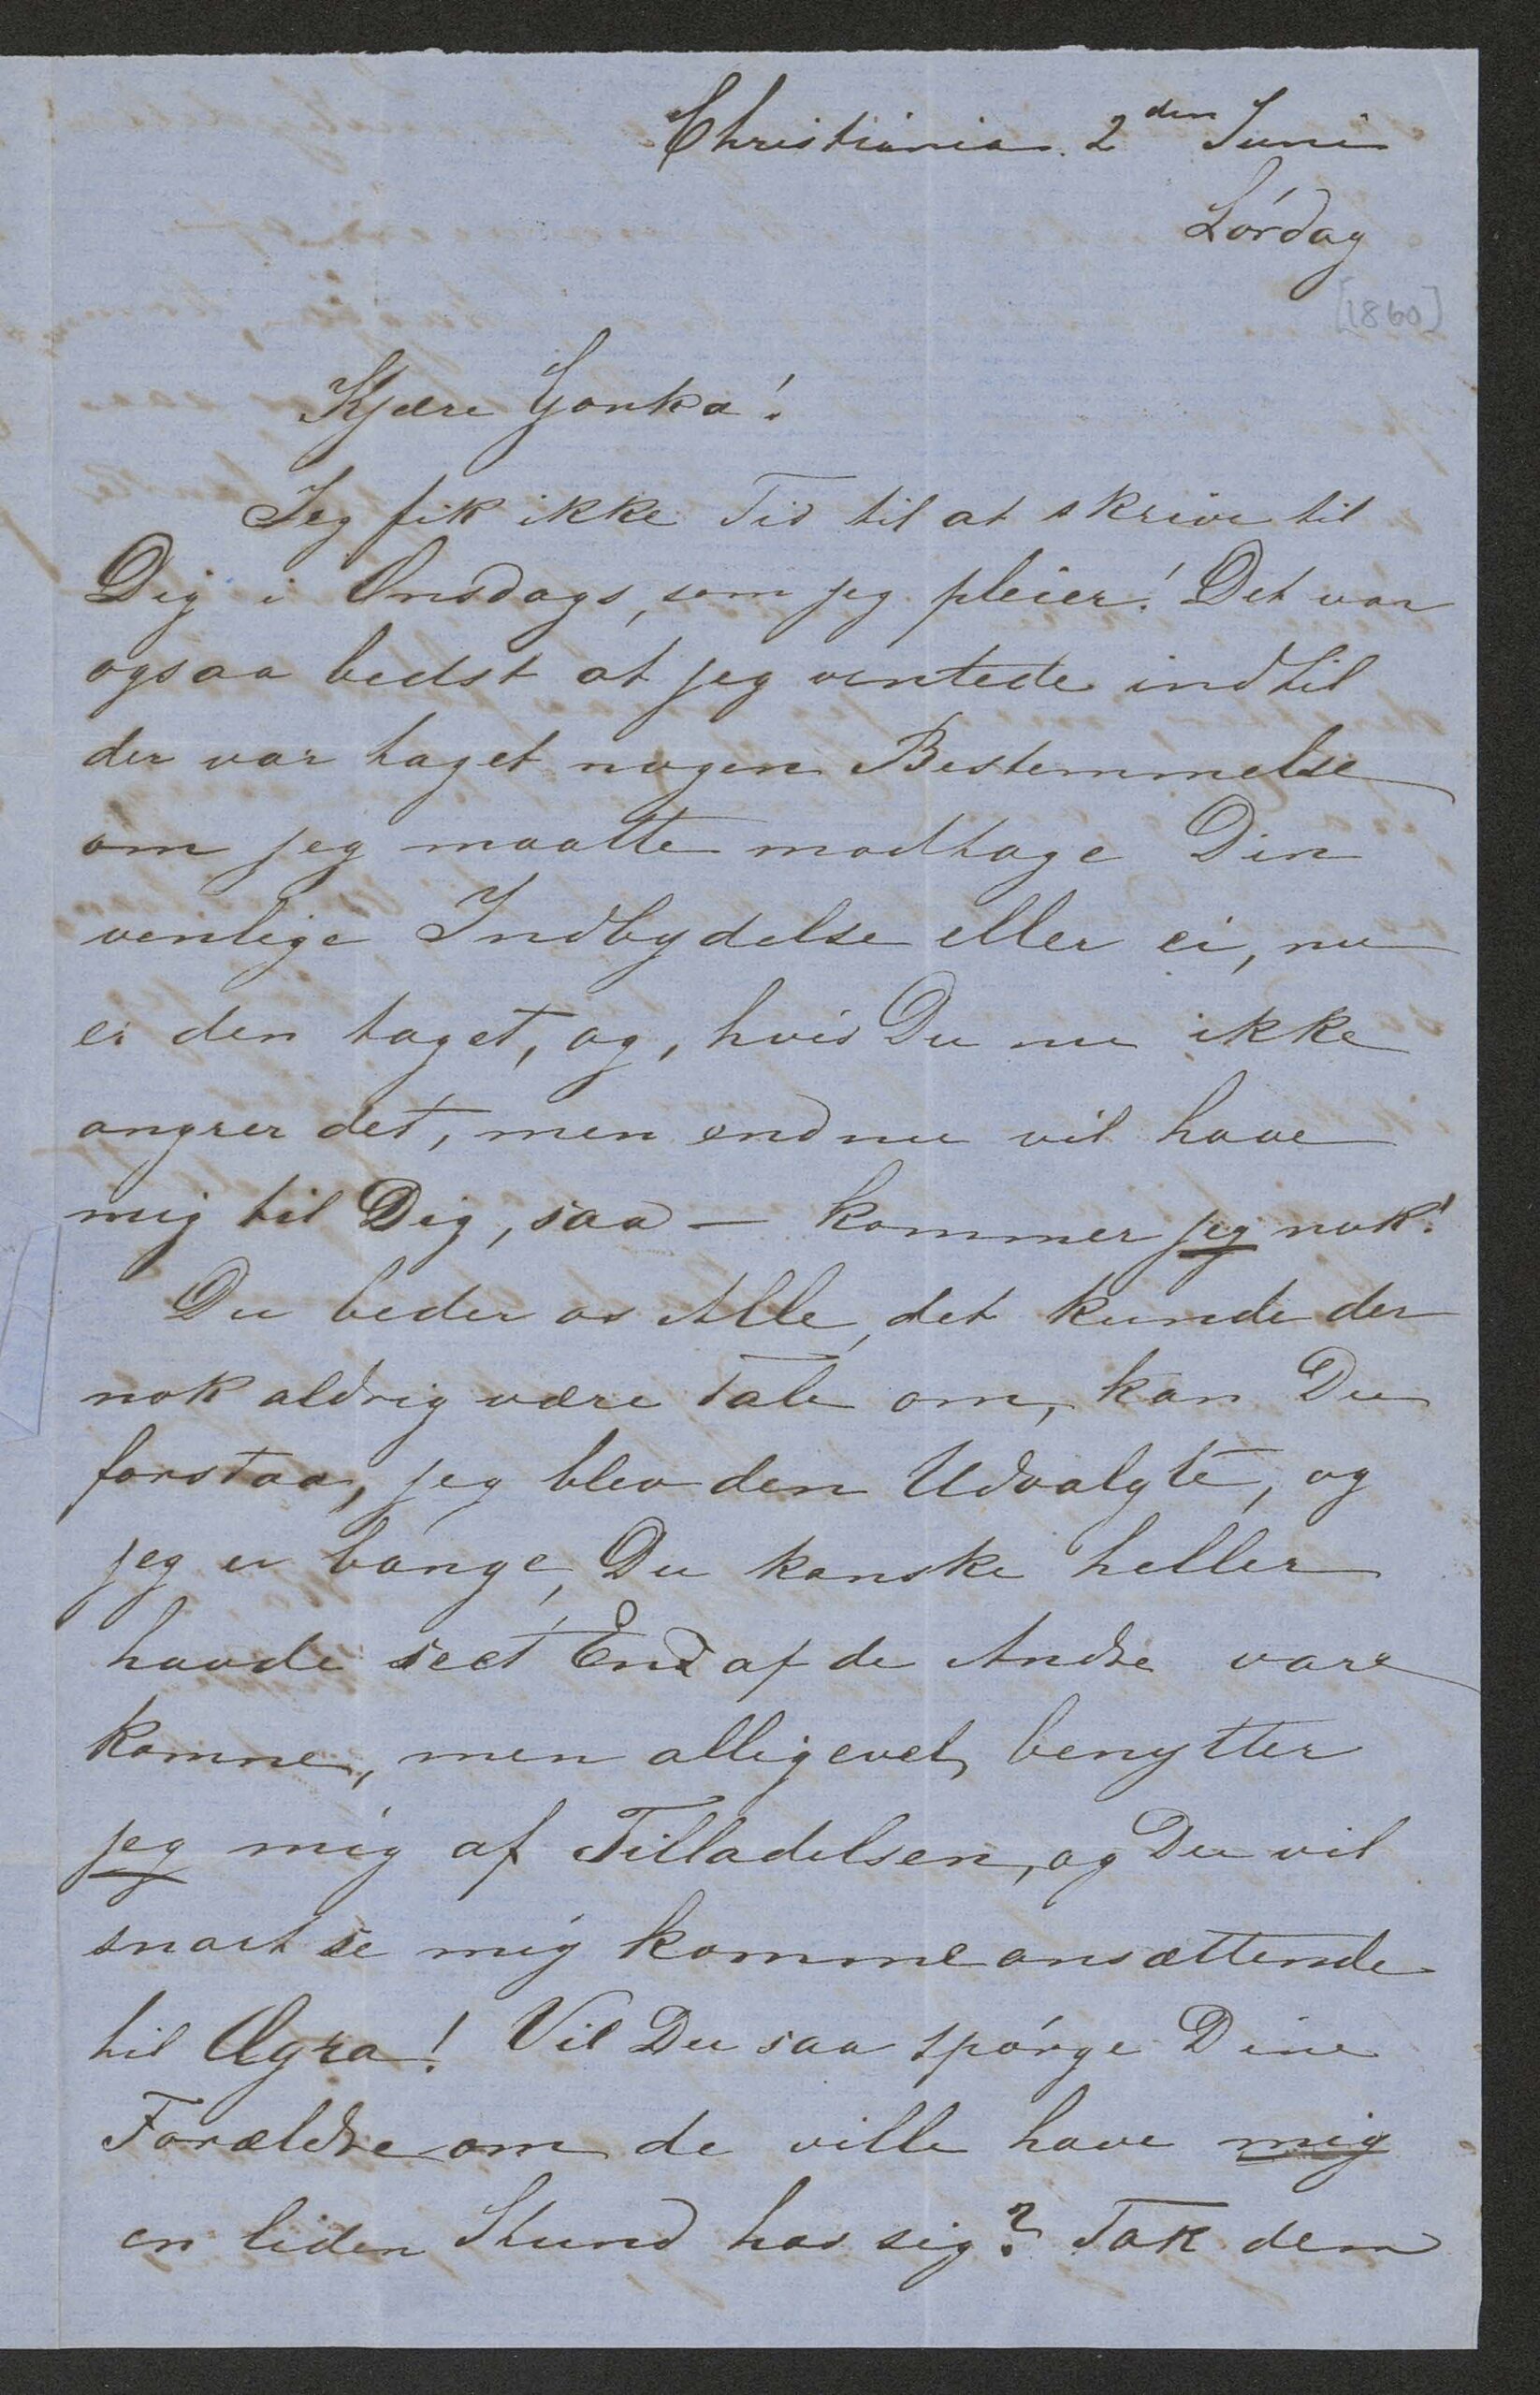 Christiania. 2den Juni
Lórdag
[1860]
Kjære Gonka!
Jeg fik ikke Tid til at skrive til
Dig i Onsdags, som jeg pleier! Det var
ogsaa bedst at jeg ventede indtil
der var taget nogen Bestemmelse
om jeg maatte modtage Din
venlige Indbydelse eller ei, nu
er den taget, og, hvis Du nu ikke
angrer det, men endnu vil have
mig til Dig, saa — kommer jeg nok!
Du beder os Alle, det kunde der
nok aldrig være Tale om, kan Du
forstaa, jeg blev den Udvalgte, og
jeg er bange, Du kanske heller
havde seet End af de Andre vare
komne, men alligevel, benytter
jeg mig af Tilladelsen, og Du vil
snart se mig komme ansættende
til Agra! Vil Du saa spórge Dine
Forældre om de ville have mig
en liden Stund hos sig? Tak dem